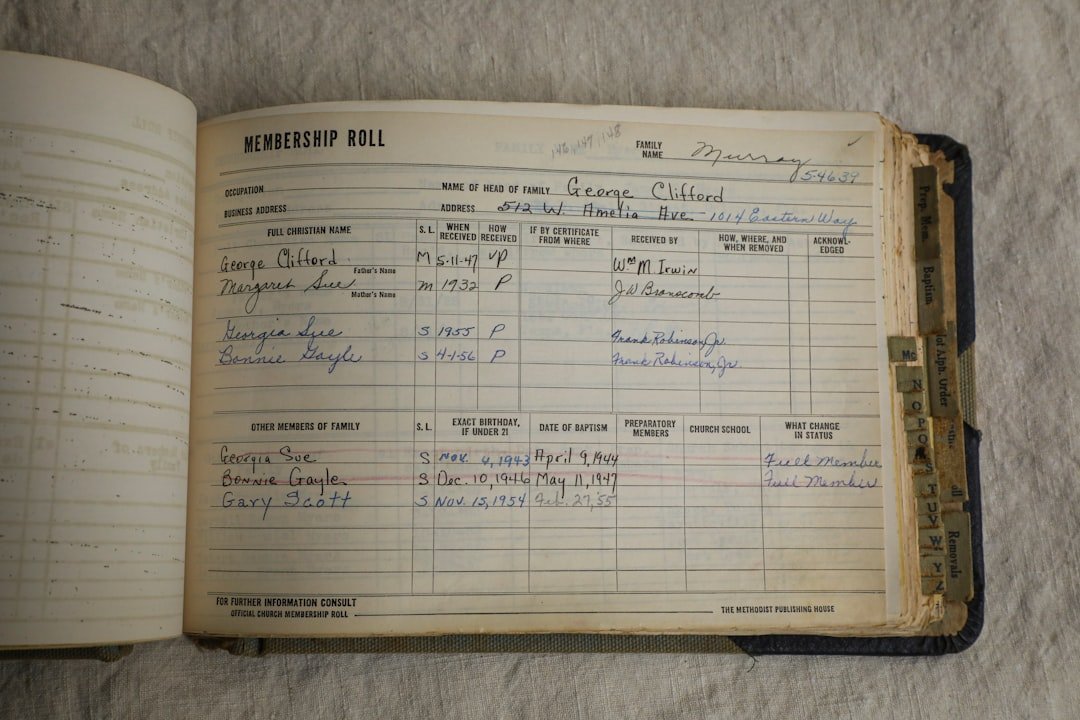 MEMBERSHIP ROLL
146 147 148
FAMILY NAME Murray
54639
OCCUPATION
NAME OF HEAD OF FAMILY George Clifford
BUSINESS ADDRESS
ADDRESS 512 W. Amelia Ave - 1014 Eastern Way
FULL CHRISTIAN NAME S. L. WHEN RECEIVED HOW RECEIVED IF BY CERTIFICATE FROM WHERE RECEIVED BY HOW, WHERE, AND WHEN REMOVED ACKNOWL- EDGED
George Clifford M 5-11-47 VP Wm M Irwin
Father's Name
Margaret Sue m 1932 P J W Branscomb
Mother's Name
Georgia Sue S 1955 P Frank Robinson, Jr.
Bonnie Gayle S 4-1-56 P Frank Robinson, Jr.
OTHER MEMBERS OF FAMILY S. L. EXACT BIRTHDAY, IF UNDER 21 DATE OF BAPTISM PREPARATORY MEMBERS CHURCH SCHOOL WHAT CHANGE IN STATUS
Georgia Sue S Nov. 4, 1943 April 9, 1944 Full Member
Bonnie Gayle S Dec. 10, 1946 May 11, 1947 Full Member
Gary Scott S Nov. 15, 1954 Feb. 27, '55
FOR FURTHER INFORMATION CONSULT
OFFICIAL CHURCH MEMBERSHIP ROLL
THE METHODIST PUBLISHING HOUSE
Prep. Mem.
Baptism
Alph. Order
Removals
Mc
N
O
P
Q
S
T
U
V
W
Y
Z